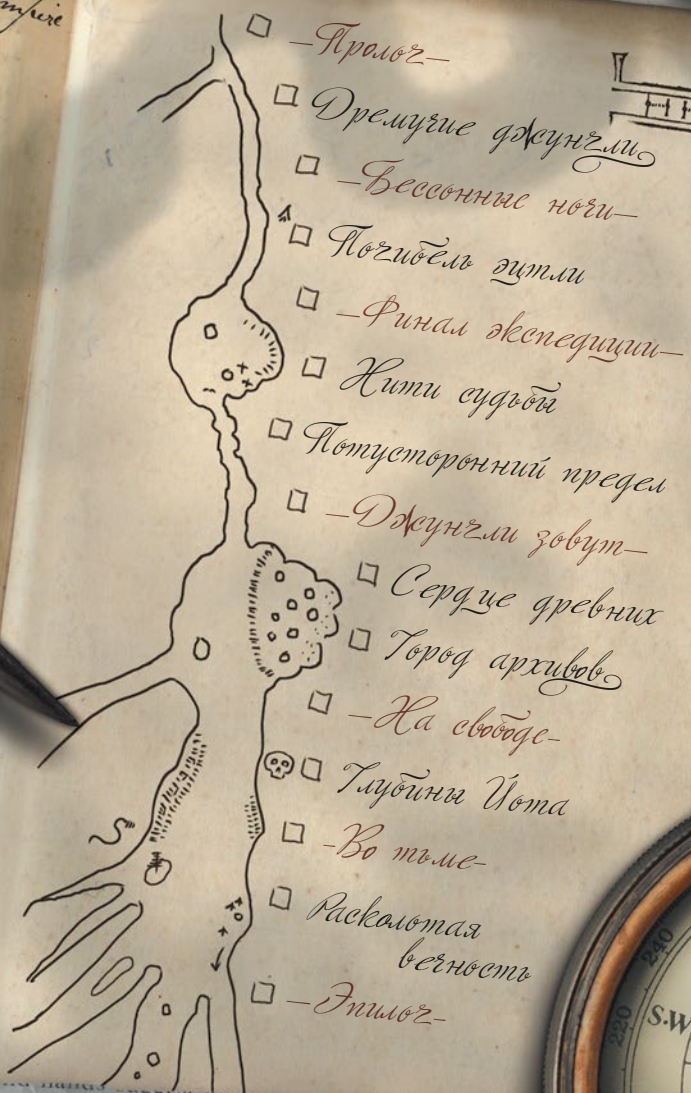 –Пролог–
Дремучие джунгли
–Бессонные ночи–
Погибель эцтли
–Финал экспедиции–
Нити судьбы
Потусторонний предел
–Джунгли зовут–
Сердце древних
Город архивов
–На свободе–
Глубины Йота
–Во тьме–
Расколотая
вечность
–Эпилог–
240
220
S.W